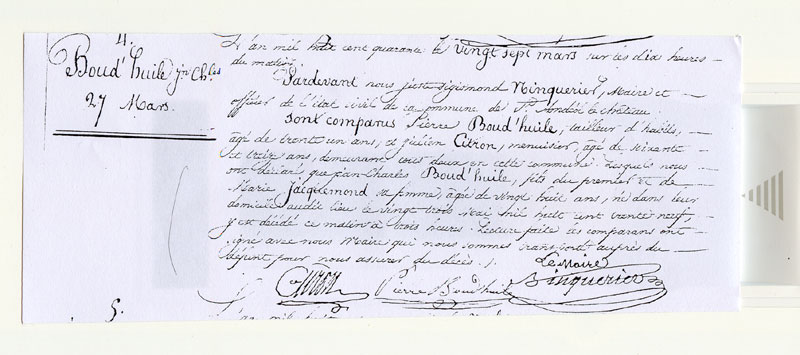 4.
Boud'huile Jn Ch.les
27 Mars.
L'an mil huit cent quarante le vingt sept mars sur les dix heures
du matin.
Pardevant nous juste Sigismond Ninguerier, Maire et
officier de l'état civil de la commune de St. Andéol le château
sont comparus Pierre Boud'huile, tailleur d'habits,
âgé de trente un ans, et julien Citron, menuisier, âgé de soixante
et treize ans, demeurant tous deux en cette commune. Lesquels nous
ont déclaré que jean Charles Boud'huile, fils du premier et de
Marie Jacquemond sa femme, âgée de vingt huit ans, né dans leur
domicile audit lieu le vingt trois mai mil huit cent trente neuf,
y est décédé ce matin à trois heures. Lecture faite les comparans ont
signé avec nous Maire qui nous sommes transporté auprès du
défunt pour nous assurer du décès ./.
Le Maire
Citron Pierre Boudhuile Binguerier
5.
L'an mil huit